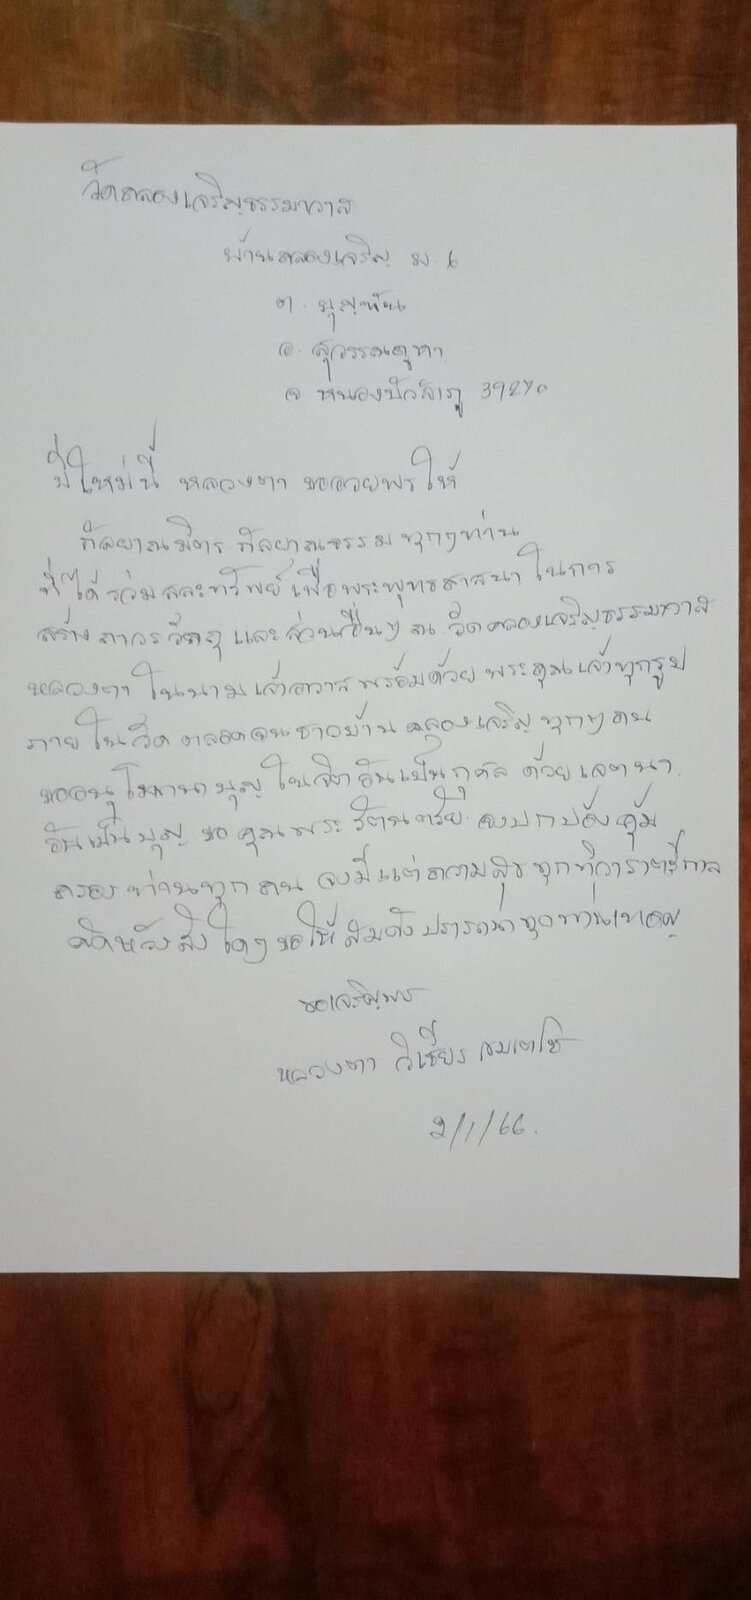 วัดคลองเจริญธรรมาวาส
บ้านคลองเจริญ ม.6
ต. บุญทัน
อ. สุวรรณคูหา
จ. หนองบัวลำภู 39270
ปีใหม่นี้ หลวงตา ขออวยพรให้
กัลยาณมิตร กัลยาณธรรม ทุกๆท่าน
ที่ได้ร่วมสละทรัพย์ เพื่อพระพุทธศาสนา ในการ
สร้างถาวรวัตถุ และส่วนอื่นๆ ณ วัดคลองเจริญธรรมาวาส
หลวงตา ในนามเจ้าอาวาสพร้อมด้วย พระคุณเจ้าทุกรูป
ภายในวัด ตลอดจนชาวบ้าน คลองเจริญ ทุกๆ คน
ขออนุโมทนาบุญ ในจิตอันเป็นกุศล ด้วยเจตนา
อันเป็นบุญ ขอ คุณพระรัตนตรัย จงปกป้องคุ้ม
ครอง ท่านทุกคน จงมีแต่ความสุข ทุกทิวาราตรีกาล
คิดหวังสิ่งใดๆ ขอให้สมดังปรารถนาทุกท่านเทอญ
ขอเจริญพร
หลวงตา วิเชียร เขมเตโช
2/1/66.